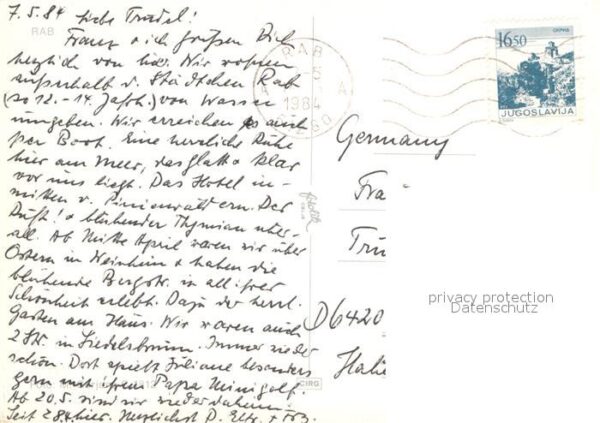 7.5.84 Liebe Trudel!
RAB
Franz + ich grüßen Dich
herzlich von hier. Wir wohnen
außerhalb v. Städtchen Rab
(so 12.-14. Jahrh.) von Wasser
umgeben. Wir erreichen es auch
per Boot. Eine herrliche Ruhe
hier am Meer, das glatt + klar
vor uns liegt. Das Hotel in-
mitten v. Pinienwäldern. Der
Duft! + blühender Thymian über-
all. Ab Mitte April waren wir über
Ostern in Weinheim + haben die
blühende Bergstr. in all ihrer
Schönheit erlebt. Dazu der herrl.
Garten am Haus. Wir waren auch
2 Std. in Siedelsbrunn. Immer wieder
schön. Dort spielt Juliane besonders
gern mit ihrem Papa Minigolf.
Ab 20.5. sind wir wieder daheim.
Seit 28.4. hier. Herzlichst D.
RAB
1984
16.50
JUGOSLAVIJA
Germany
Fra
Tru
D6420
privacy protection
Datenschutz